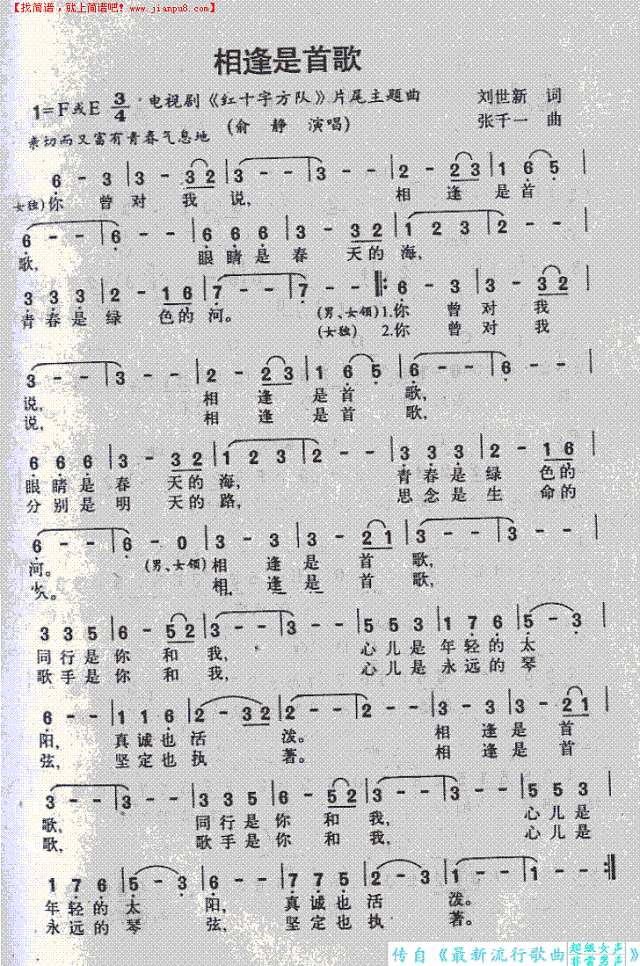 【找简谱,就上简谱吧! www.jianpu8.com】
相逢是首歌
1=F或E 3/4 电视剧《红十字方队》片尾主题曲 刘世新 词
亲切而又富有青春气息地 (俞静 演唱) 张千一 曲
6 - 3 3 - 3 2 3 - - 3 - - 2 - 2 3 1 6 5
(女独)你 曾对 我 说, 相 逢 是首
6 - - 6 - - 6 6 6 3 - 3 2 1 2 3 2 - -
歌, 眼睛是春 天的海,
3 3 3 2 - 1 6 7 - - 7 - - 6 - 3 3 - 3 2
青春是绿 色的河。 (男、女领)1.你 曾对 我
(女独) 2.你 曾对 我
3 - - 3 - - 2 - 2 3 1 6 5 6 - - 6 - -
说, 相 逢 是首 歌,
说, 相 逢 是首 歌,
6 6 6 3 - 3 2 1 2 3 2 - - 3 3 3 2 - 1 6
眼睛是春 天的海, 青春是绿 色的
分别是明 天的路, 思念是生 命的
6 - - 6 - 0 3 - 3 3 - 2 1 3 - - 3 - -
河。 (男、女领)相 逢是 首 歌,
火。 相 逢是 首 歌,
3 3 5 6 - 5 2 3 - - 3 - - 5 5 3 5 5 3 5 - 3
同行是你 和我, 心儿是年轻的太
歌手是你 和我, 心儿是永远的琴
6 - - 1 1 6 2 - 3 2 2 - - 3 - 3 3 - 2 1
阳, 真诚也活 泼。 相 逢是 首
弦, 坚定也执 著。 相 逢是 首
3 - - 3 - - 3 3 5 6 - 5 2 3 - - 3 - - 5 5 3
歌, 同行是你 和我, 心儿是
歌, 歌手是你 和我, 心儿是
1 7 6 5 - 3 6 - - 7 7 5 6 - - 6 - -
年轻的太 阳, 真诚也活 泼。
永远的琴 弦, 坚定也执 著。
传自《最新流行歌曲超级女声菲常男声》